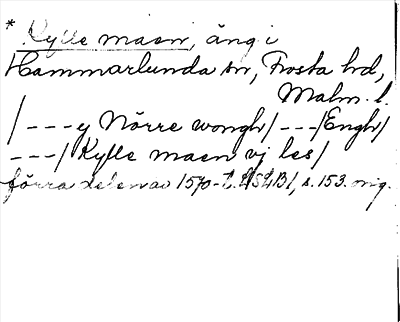 * Kylle maen, äng i
Hammarlunda sn, Frosta hd,
Malm. l.
/ --- y Nörre wongh / --- / Engh /
--- / Kylle maen vj les /
förra delen av 1570-t. LSLB1, s. 153. orig.